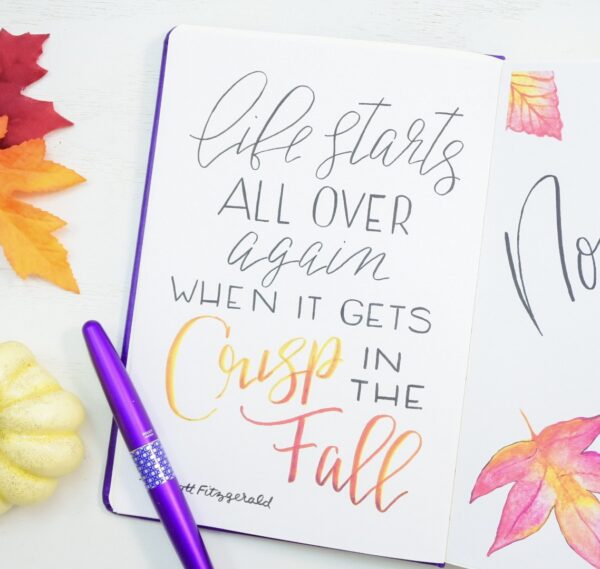 life starts
ALL OVER
again
WHEN IT GETS
Crisp IN
THE
Fall
Fitzgerald